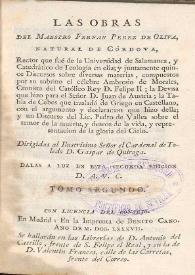 LAS OBRAS
DEL MAESTRO FERNAN PEREZ DE OLIVA,
NATURAL DE CÓRDOVA,
Rector que fué de la Universidad de Salamanca, y
Catedrático de Teología en ella; y juntamente quin-
ce Discursos sobre diversas materias, compuestos
por su sobrino el célebre Ambrosio de Morales,
Cronista del Católico Rey D. Felipe II; la Devisa
que hizo para el Señor D. Juan de Austria; la Ta-
bla de Cebes que trasladó de Griego en Castellano,
con el argumento y declaracion que hizo della;
y un Discurso del Lic. Pedro de Valles sobre el
temor de la muerte, y deseo de la vida, y repre-
sentacion de la gloria del Cielo.
Dirigidas al Ilustrísimo Señor el Cardenal de Tole-
do D. Gaspar de Quiroga.
DALAS A LUZ EN ESTA SEGUNDA EDICION
D. A. V. C.
TOMO SEGUNDO.
CON LICENCIA DEL CONSEJO.
En Madrid: En la Imprenta de BENITO CANO.
AÑO DE M. DCC. LXXXVII.
Se hallarán en las Librerías de D. Antonio del
Castillo, frente de S. Felipe el Real; y en la
de D. Valentin Frances, calle de las Carretas,
frente del Correo.